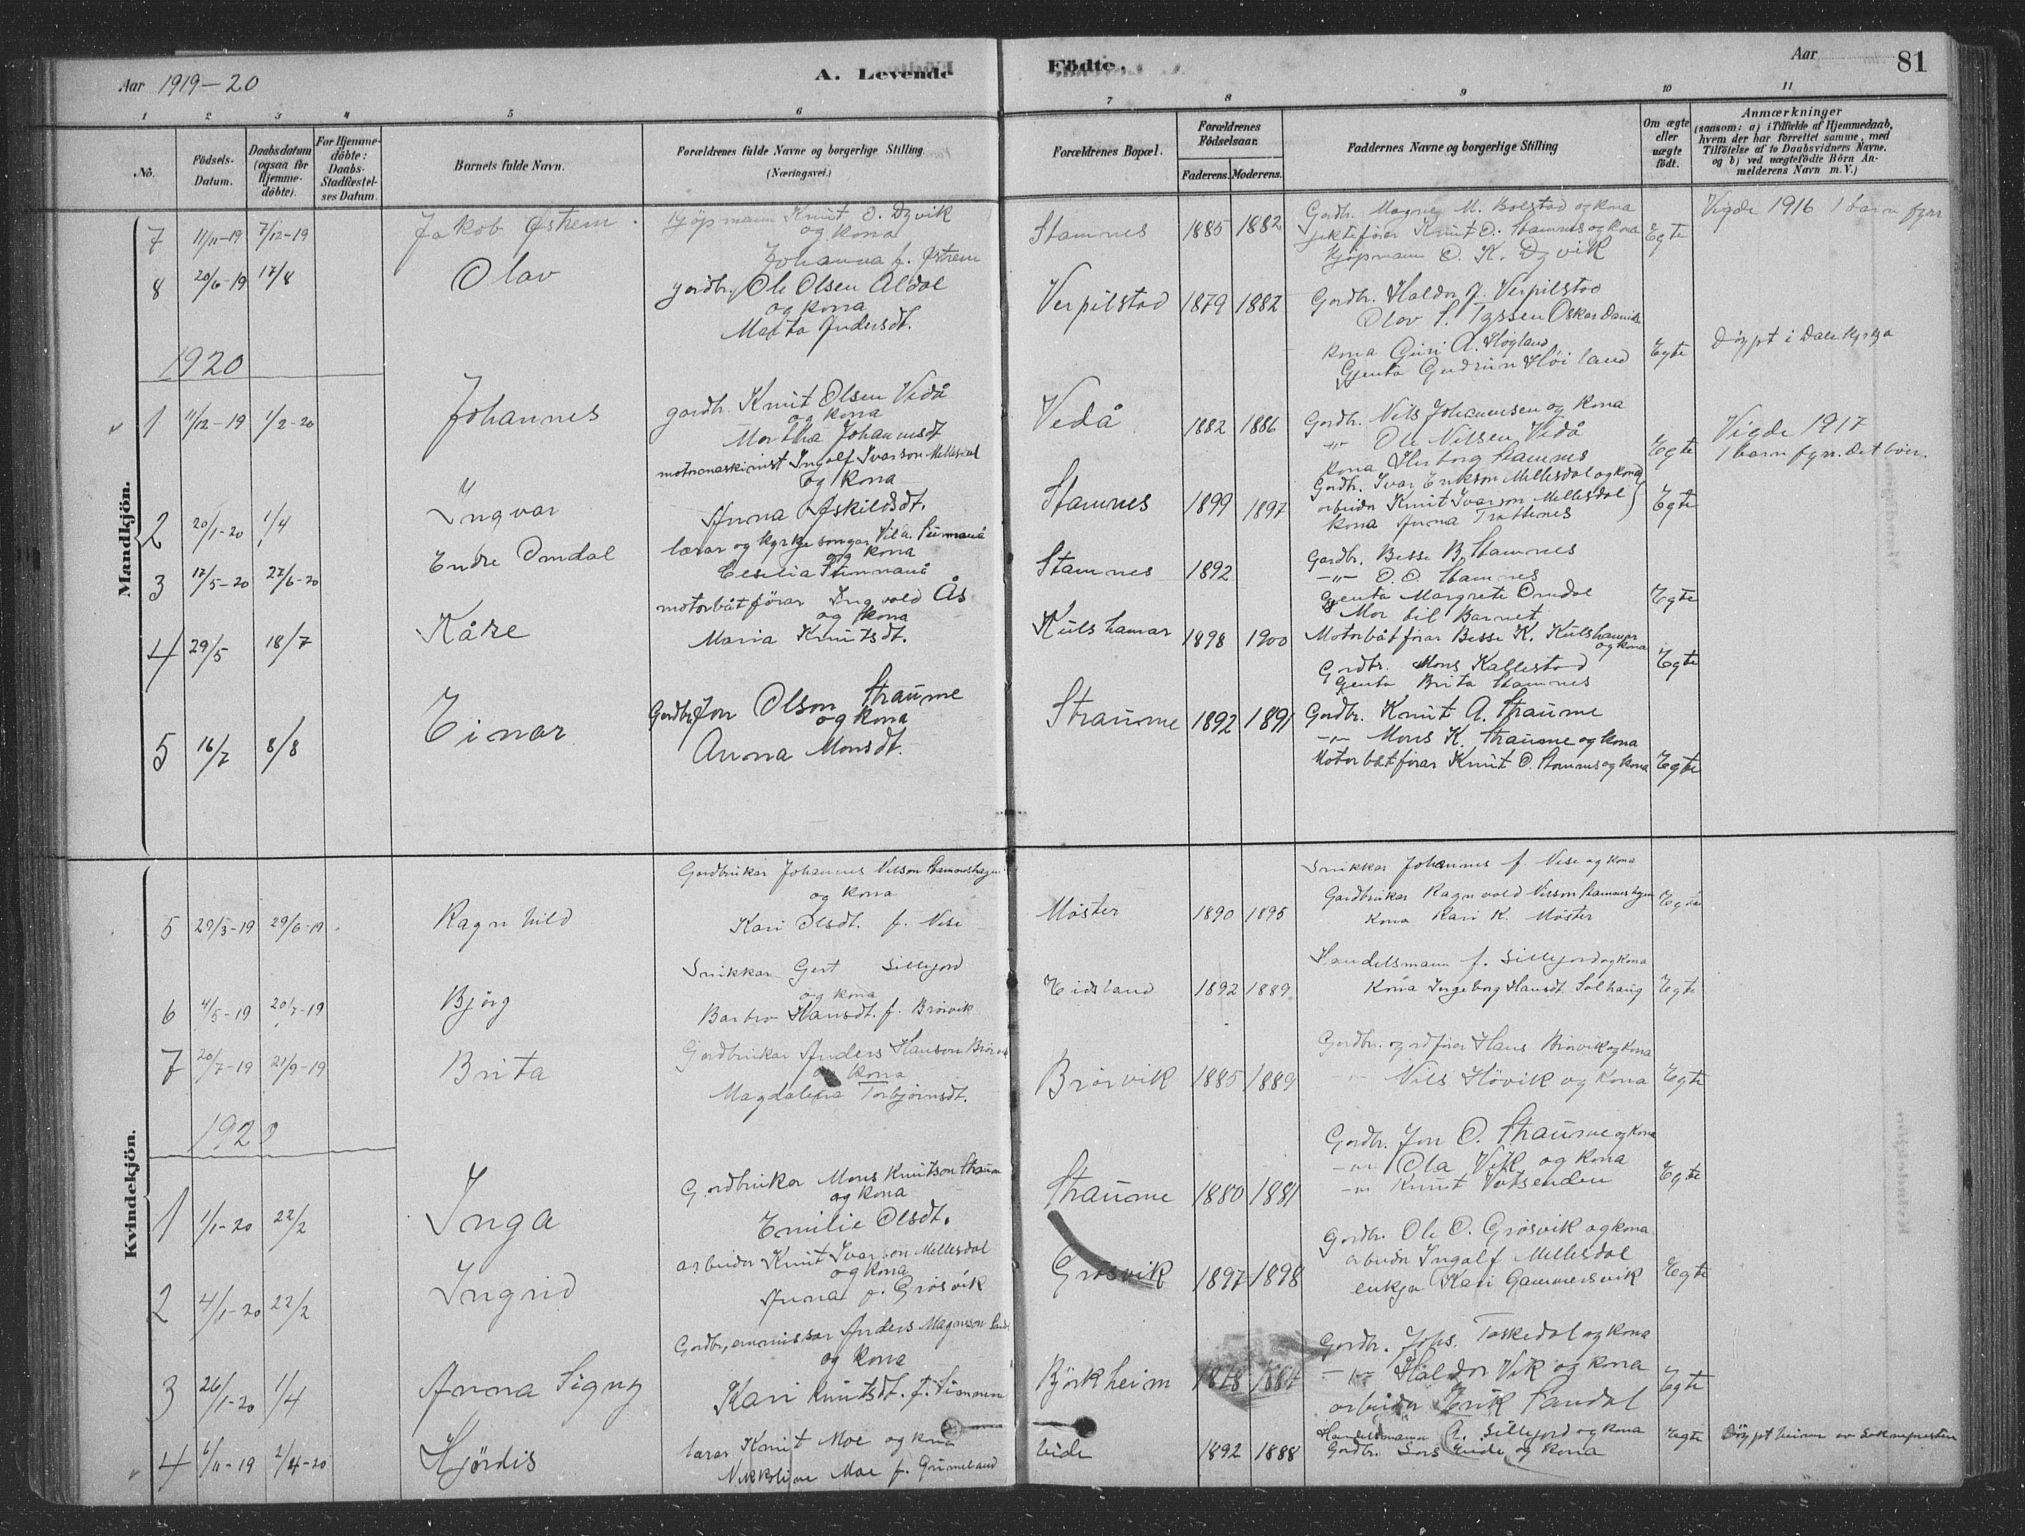 Aar 1919-20
A. Levende
Födte.
Aar
81
1
2
3
4
5
6
7
8
9
10
11
No.
Födsels-
Datum.
Daabsdatum
(ogsaa før
Hjemme-
døbte).
For Hjemme-
döbte:
Daabs-
Stadfæstel-
ses Datum.
Barnets fulde Navn.
Forældrenes fulde Navne og borgerlige Stilling
(Næringsvei.)
Forældrenes Bopæl.
Forældrenes
Födselsaar.
Faderens.
Moderens.
Faddernes Navne og borgerlige Stilling
Om ægte
eller
uægte
født.
Anmærkninger
(saasom: a) i Tilfælde af Hjemmedaab,
hvem der har forrettet samme, med
Tilføielse af to Daabsvidners Navne,
og b) ved uægtefödte Börn An-
melderens Navn m. V.)
Mandkjön.
7 11/11-19 7/12-19 Jakob Østrem. Kjöpmann Knut O. Dyvik
og kona
Johanna f. Østrem
Stamnes 1885 1882 Gardbr. Magne M. Bolstad og kona
jektefórer Knut O. Stamnes og kona
Kjöpmann O. K. Dyvik
Egte Vigde 1916 1 barn fyrr
8 20/6-19 17/8 Olav gardbr. Ole Olsen Aldal
og kona
Marta Andersdt.
Verpilstad 1879 1882 Gardbr. Haldor J. Verpilstad
Olav S. Tyssen Oskar
kona Guri A. Högland
Gjenta Gudrun Höiland
Egte Döypt i Dale Kyrkja
1920
1 11/12-19 1/2-20 Johannes gardbr. Knut Olsen Vedå
og kona
Martha Johannesdt.
Vedå 1882 1886 Gardbr. Nils Johannesen og kona
-"- Ole Nilsen Vedå
kona Herborg Stamnes
Egte Vigde 1917
1 barn fyrr. det liver.
2 20/1-20 1/4 Yngvar motormaskinist Ingolf Ivarson Mellesdal
og kona
Anna Askildsdt.
Stamnes 1899 1897 Gardbr. Ivar Erikson Mellesdal og kona
arbeider Knut Ivarson Mellesdal
kona Anna Trettenes
Egte
3 17/5-20 27/6-20 Endre Omdal lærar og kyrkjesongar
og kona
Cesilia
Stamnes 1892 Gardbr. Besse B. Stamnes
-"- O. O. Stamnes
gjenta Margrete Omdal
Mor til Barnet
Egte
4 29/5 18/7 Kåre motorbåtförar Ingvald Ås
og kona
Maria Knutsdt.
Kulshamar 1898 1900 Motorbåtförar Besse K. Kulshamar
og kona
Gardbr. Mons Kallestad
gjenta Brita Stamnes
Egte
5 16/7 8/8 Einar Gardbr. Jon Olson Straume
og kona
Anna Monsdt.
Straume 1892 1891 Gardbr. Knut A. Straume
-"- Mons K. Straume og kona
Motorbåtförar Knut O. Stamnes og kona
Egte
Kvindekjön.
5 29/3-19 29/6-19 Ragnhild Gardbrukar Johannes Nilson Stamneshagen
og kona
Kari Olsdt. f. Nese
Møster 1890 1895 Snikkar Johannes J. Nese og kona
Gardbrukar Ragnvald Nilson Stamneshagen
kona Kari K. Møster
Egte
6 4/5-19 20/7-19 Bjørg Snikkar Gert Sillejord
og kona
Barbro Hansdt. f. Brörvik
Eidsland 1892 1889 Handelsmann J. Sillejord og kona
kona Ingeborg Hansdt. Solhaug
Egte
7 20/7-19 21/9-19 Brita Gardbrukar Anders Hanson
og kona
Magdalena Torbjörnsdt.
Brörvik 1885 1889 Gardbr. og ordförer Hans Brörvik og kona
-"- Nils Hövik og kona
Egte
1920
1 1/1-20 22/2 Inga Gardbrukar Mons Knutson Straume
og kona
Emilie Olsdt.
Straume 1880 1881 Gardbr. Jon O. Straume og kona
-"- Ola Vik og kona
-"- Knut
Egte
2 4/1-20 22/2 Ingrid arbeider Knut Ivarson Mellesdal
og kona
Anna f. Grøsvik
Grøsvik 1897 1898 Gardbr. Ole O. Grøsvik og kona
arbeider Ingolf Mellesdal
enkja Kari Gammersvik
Egte
3 26/1-20 1/4 Anna Signy Gardbr, emmissær Anders Magnuson
og kona
Kari Knutsdt. f.
Björkheim 1878 Gardbr. Johs. Taskedal og kona
-"- Haldor Vik og kona
arbeider Erik Sandal
Egte
4 6/11-19 2/4-20 Hjördis lærar Knut Moe og kona
Nikkoline Moe f. Grimeland
Eide 1892 1888 Handelsmann A. Sillejord og kona
Gardbr. Lars Eide og kona
Egte Döypt heime av Soknepresten